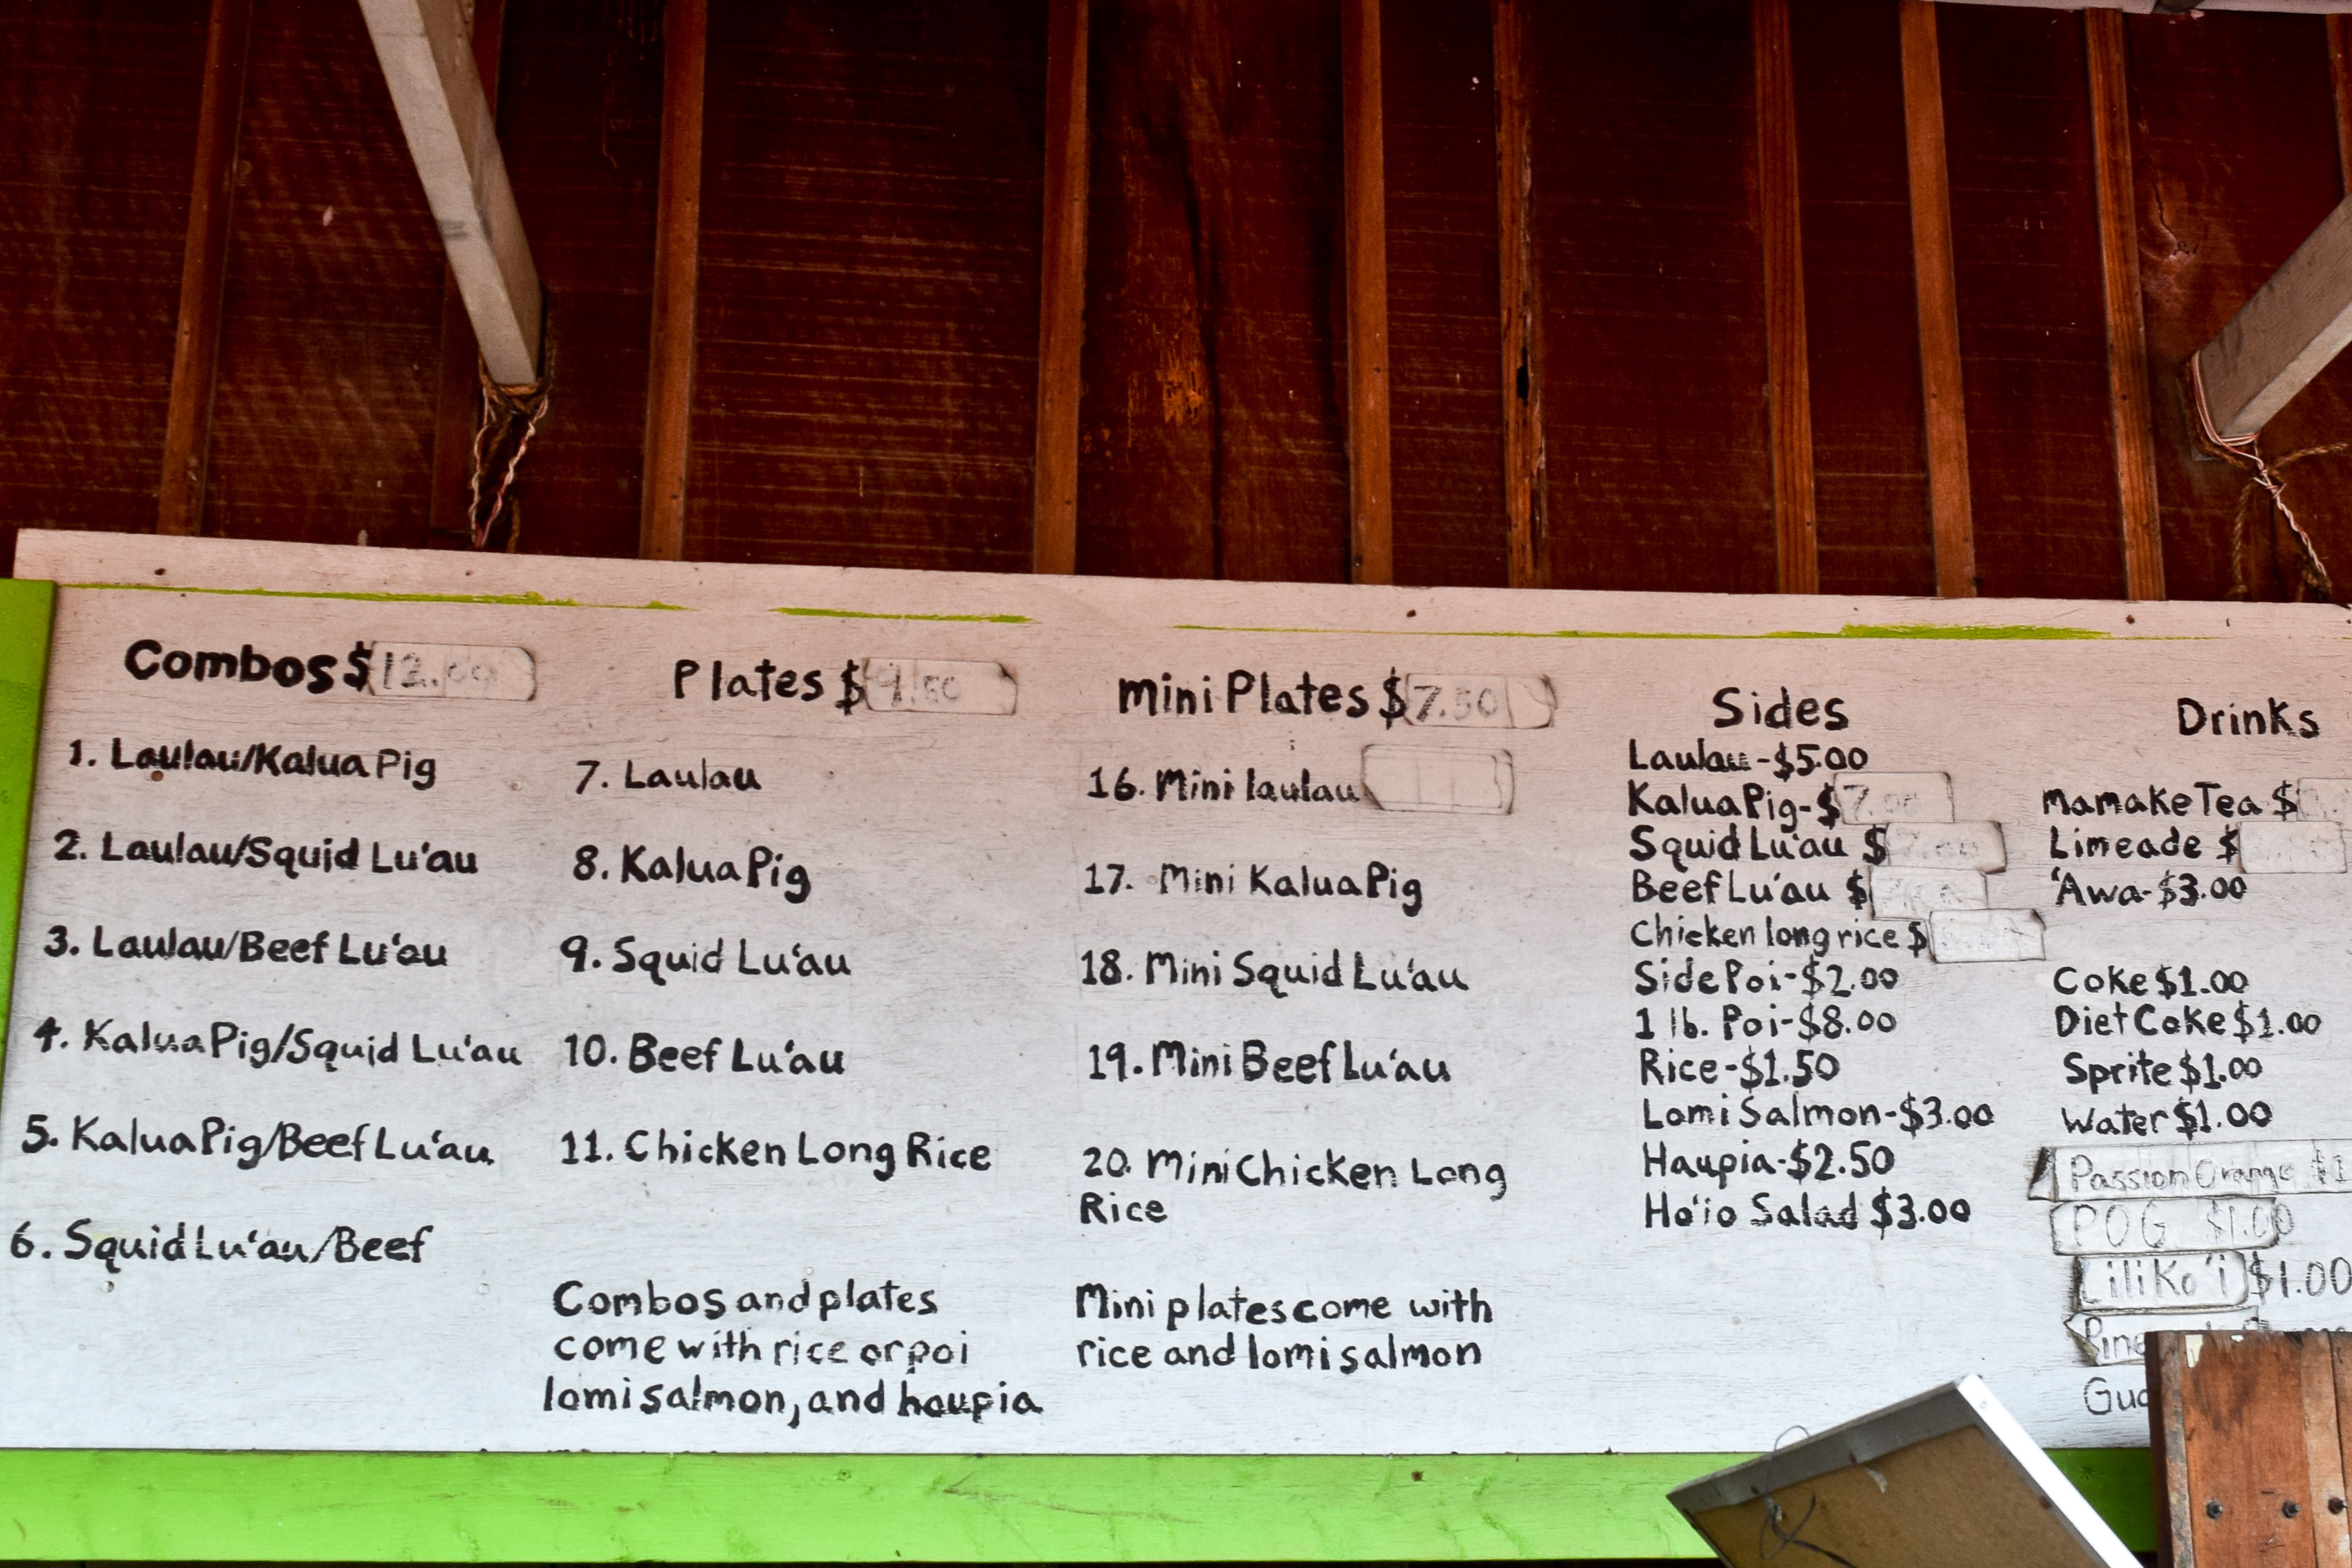 Combos $12.00
1. Laulau/Kalua Pig
2. Laulau/Squid Lu'au
3. Laulau/Beef Lu'au
4. Kalua Pig/Squid Lu'au
5. Kalua Pig/Beef Lu'au
6. Squid Lu'au/Beef
Plates $9.50
7. Laulau
8. Kalua Pig
9. Squid Lu'au
10. Beef Lu'au
11. Chicken Long Rice
Combos and plates
come with rice or poi
lomi salmon, and haupia
Mini Plates $7.50
16. Mini laulau
17. Mini Kalua Pig
18. Mini Squid Lu'au
19. Mini Beef Lu'au
20. Mini Chicken Long
Rice
Mini plates come with
rice and lomi salmon
Sides
Laulau-$5.00
Kalua Pig-$7.00
Squid Lu'au $
Beef Lu'au $
Chicken long rice $
Side Poi-$2.00
1 lb. Poi-$8.00
Rice-$1.50
Lomi Salmon-$3.00
Haupia-$2.50
Ho'io Salad $3.00
Drinks
Mamake Tea $
Limeade $
'Awa-$3.00
Coke $1.00
Diet Coke $1.00
Sprite $1.00
Water $1.00
Passion Orange $1
POG $1.00
Liliko'i $1.00